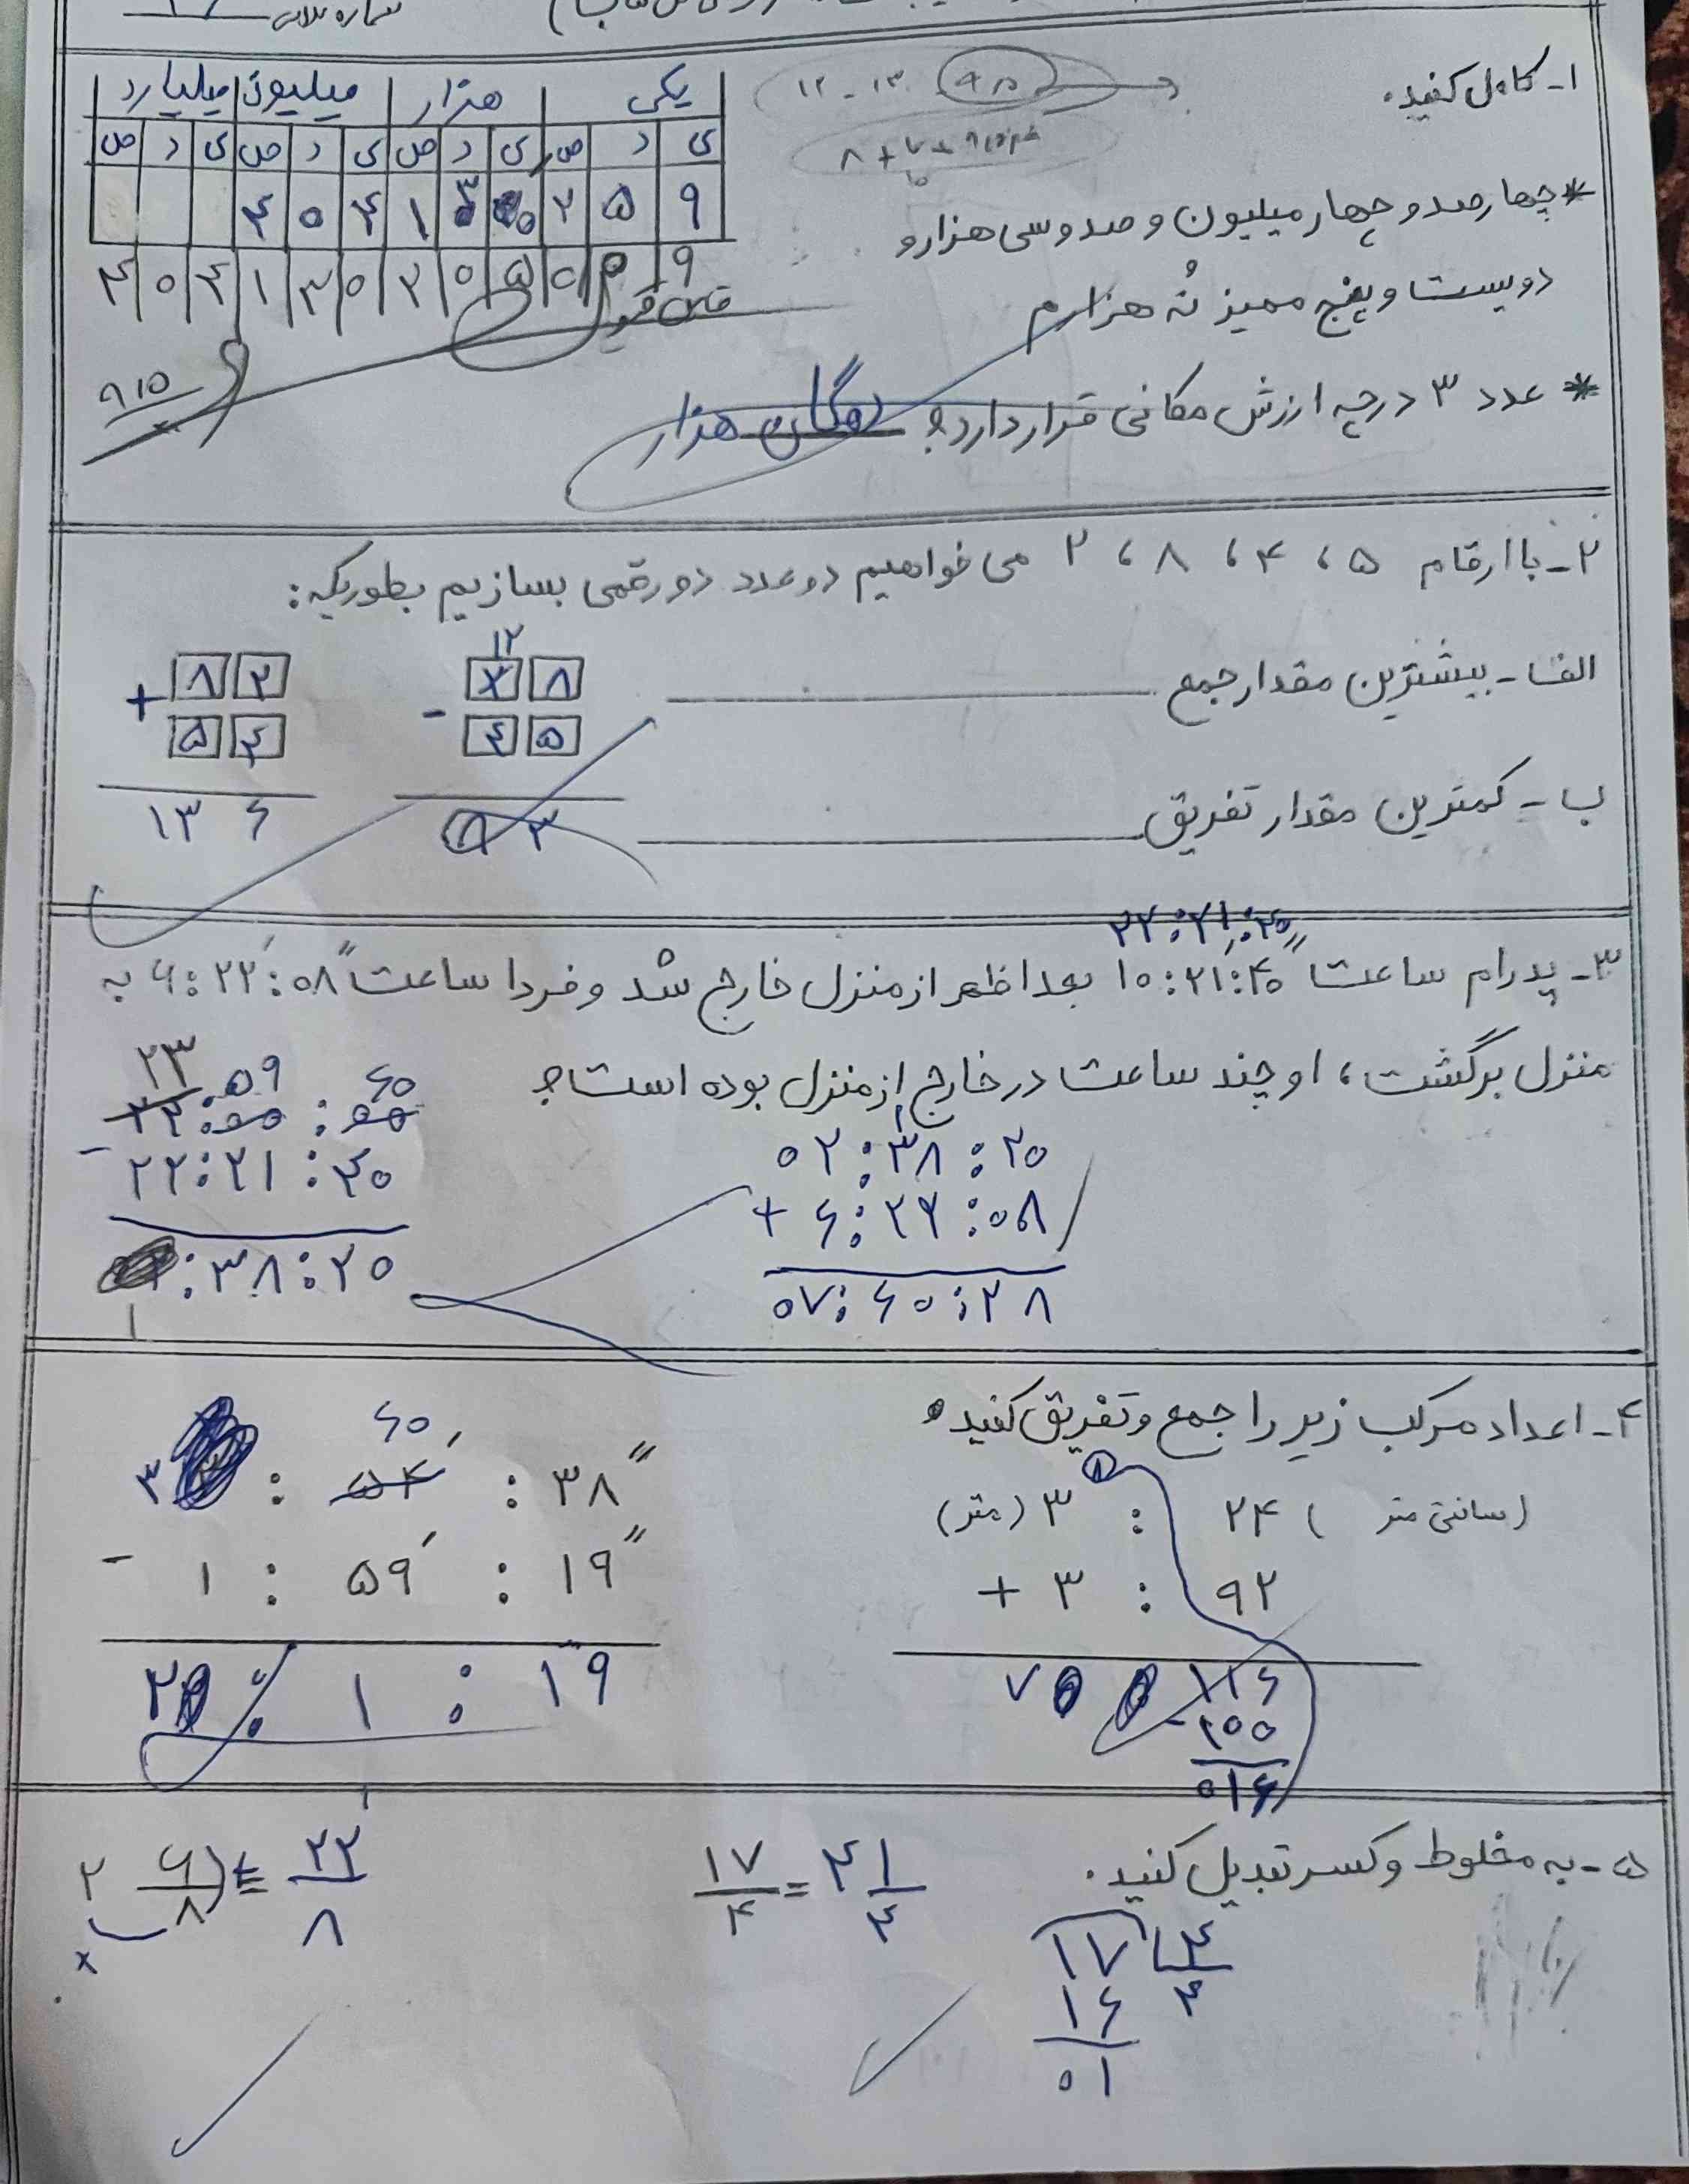 شماره کلاس
۱- کامل کنید.
۱۲ - ۱۳ ۹/۵
یکی هزار میلیون میلیارد
ص د ی ص د ی ص د ی ص د ی
۴ ۰ ۴ ۱ ۳ ۰ ۲ ۵ ۹
۴ ۰ ۴ ۱ ۳ ۰ ۲ ۰ ۵ ۰ ۰ ۹
* چهارصد و چهار میلیون و صد و سی هزار و
دویست و پنج ممیز نُه هزارم
۹/۵
* عدد ۳ در چه ارزش مکانی قرار دارد؟ دهگان هزار
۲- با ارقام ۵ ، ۴ ، ۸ ، ۲ می خواهیم دو عدد دو رقمی بسازیم بطوریکه:
الف - بیشترین مقدار جمع
ب - کمترین مقدار تفریق
۸۲
+ ۵۴
۱۳۶
۱۲
۲۸
- ۴۵
۸۳
۲۲:۲۱:۴۰
۳- پدرام ساعت ۱۰:۲۱′:۴۰″ بعد اظهر از منزل خارج شد و فردا ساعت ۶:۲۲′:۰۸″ به
منزل برگشت ، او چند ساعت در خارج از منزل بوده است؟
۲۳:۵۹:۶۰
- ۲۲:۲۱:۴۰
۱:۳۸:۲۰
۰۲:۳۸:۲۰
+ ۶:۲۲:۰۸
۰۷:۶۰:۲۸
۴- اعداد مرکب زیر را جمع و تفریق کنید
۳ (متر) : ۲۴ (سانتی متر)
+ ۳ : ۹۲
۷ ۱۱۶
- ۱۰۰
۰۱۶
۶۰
۳ : : ۳۸″
- ۱ : ۵۹′ : ۱۹″
۲ : ۱ : ۱۹
۵- به مخلوط و کسر تبدیل کنید.
۱۷/۴ = ۴ ۱/۴
۲ ۶/۸ = ۲۲/۸
۱۷ ۴
۱۶ ۴
۰۱